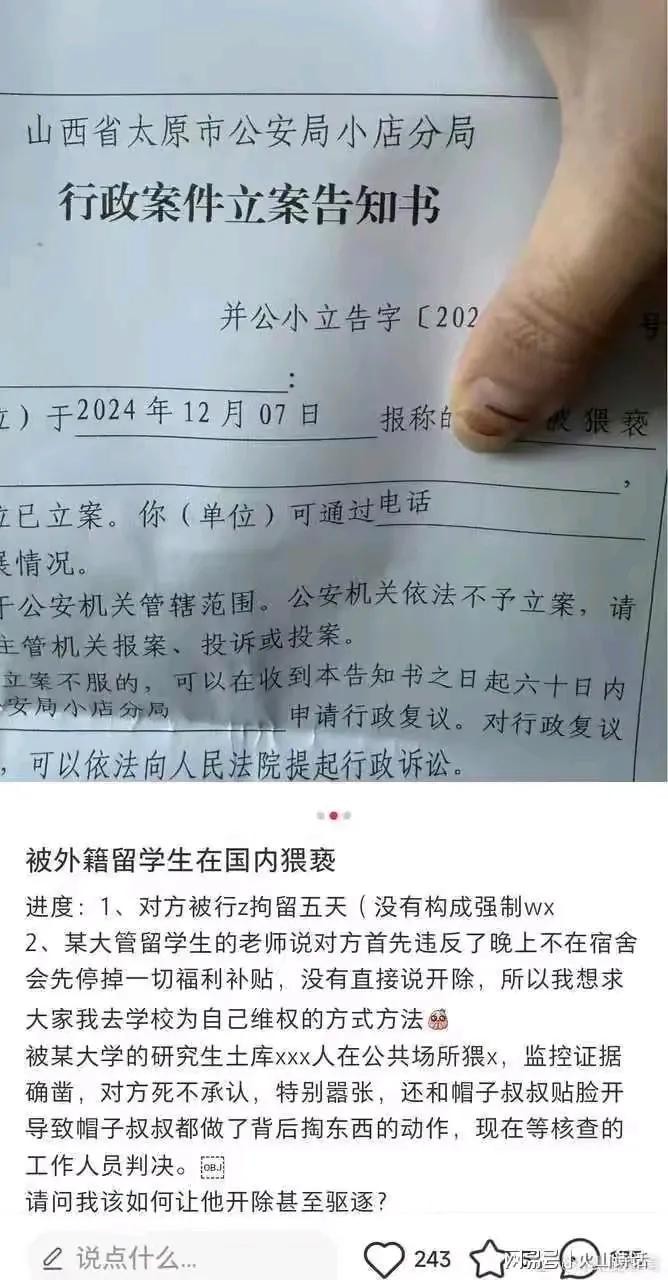 山西省太原市公安局小店分局
行政案件立案告知书
并公小立告字〔202 号
：
）于2024年12月07日 报称的 被猥亵
，
已立案。你（单位）可通过电话
情况。
于公安机关管辖范围。公安机关依法不予立案，请
主管机关报案、投诉或投案。
立案不服的，可以在收到本告知书之日起六十日内
安局小店分局 申请行政复议。对行政复议
，可以依法向人民法院提起行政诉讼。
被外籍留学生在国内猥亵
进度：1、对方被行z拘留五天（没有构成强制wx
2、某大管留学生的老师说对方首先违反了晚上不在宿舍
会先停掉一切福利补贴，没有直接说开除，所以我想求
大家我去学校为自己维权的方式方法
被某大学的研究生土库xxx人在公共场所猥x，监控证据
确凿，对方死不承认，特别嚣张，还和帽子叔叔贴脸开
导致帽子叔叔都做了背后掏东西的动作，现在等核查的
工作人员判决。OBJ
请问我该如何让他开除甚至驱逐？
说点什么... 243